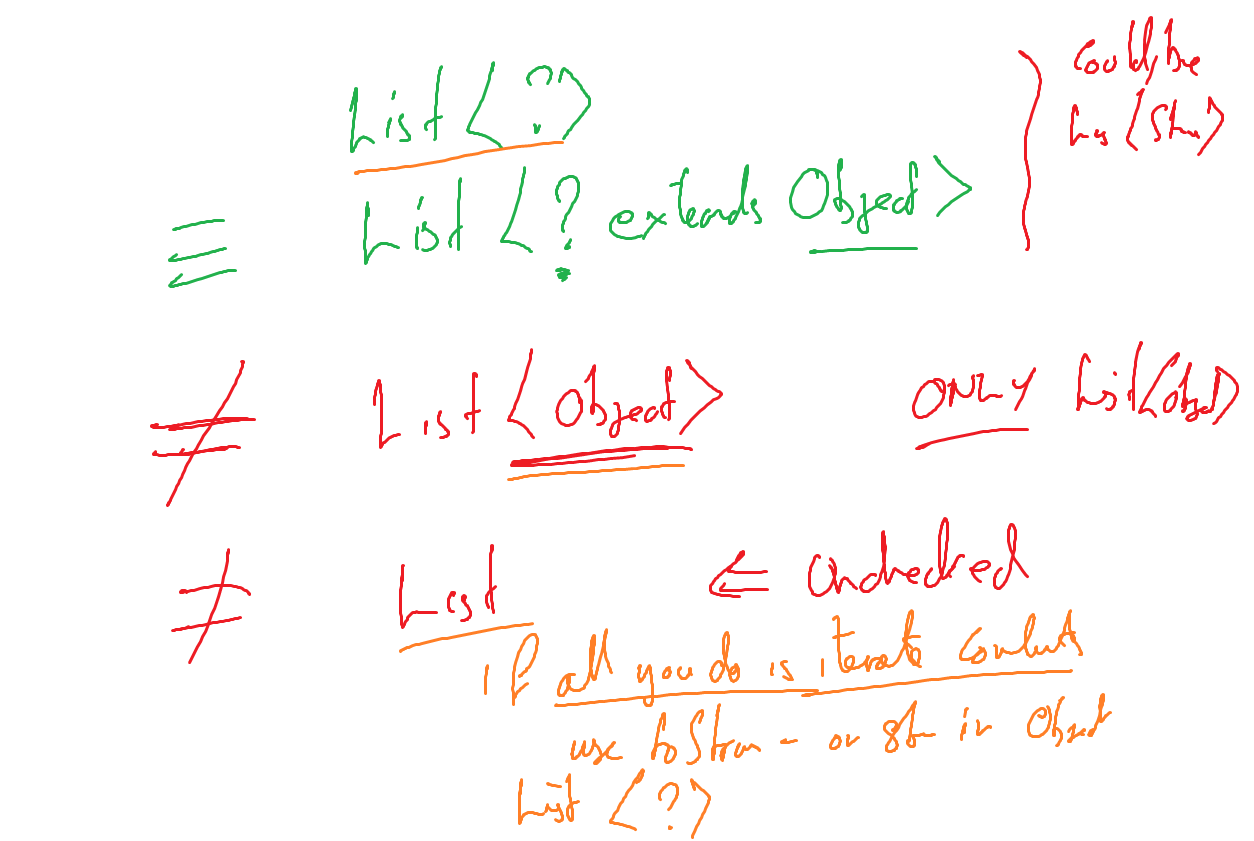 List <?>
could be
List <? extends Object>
≡
≠ List <Object> ONLY List<Object>
≠ List ⇐ Unchecked
if all you do is iterate contents
use toString - or sth in Object
List <?>